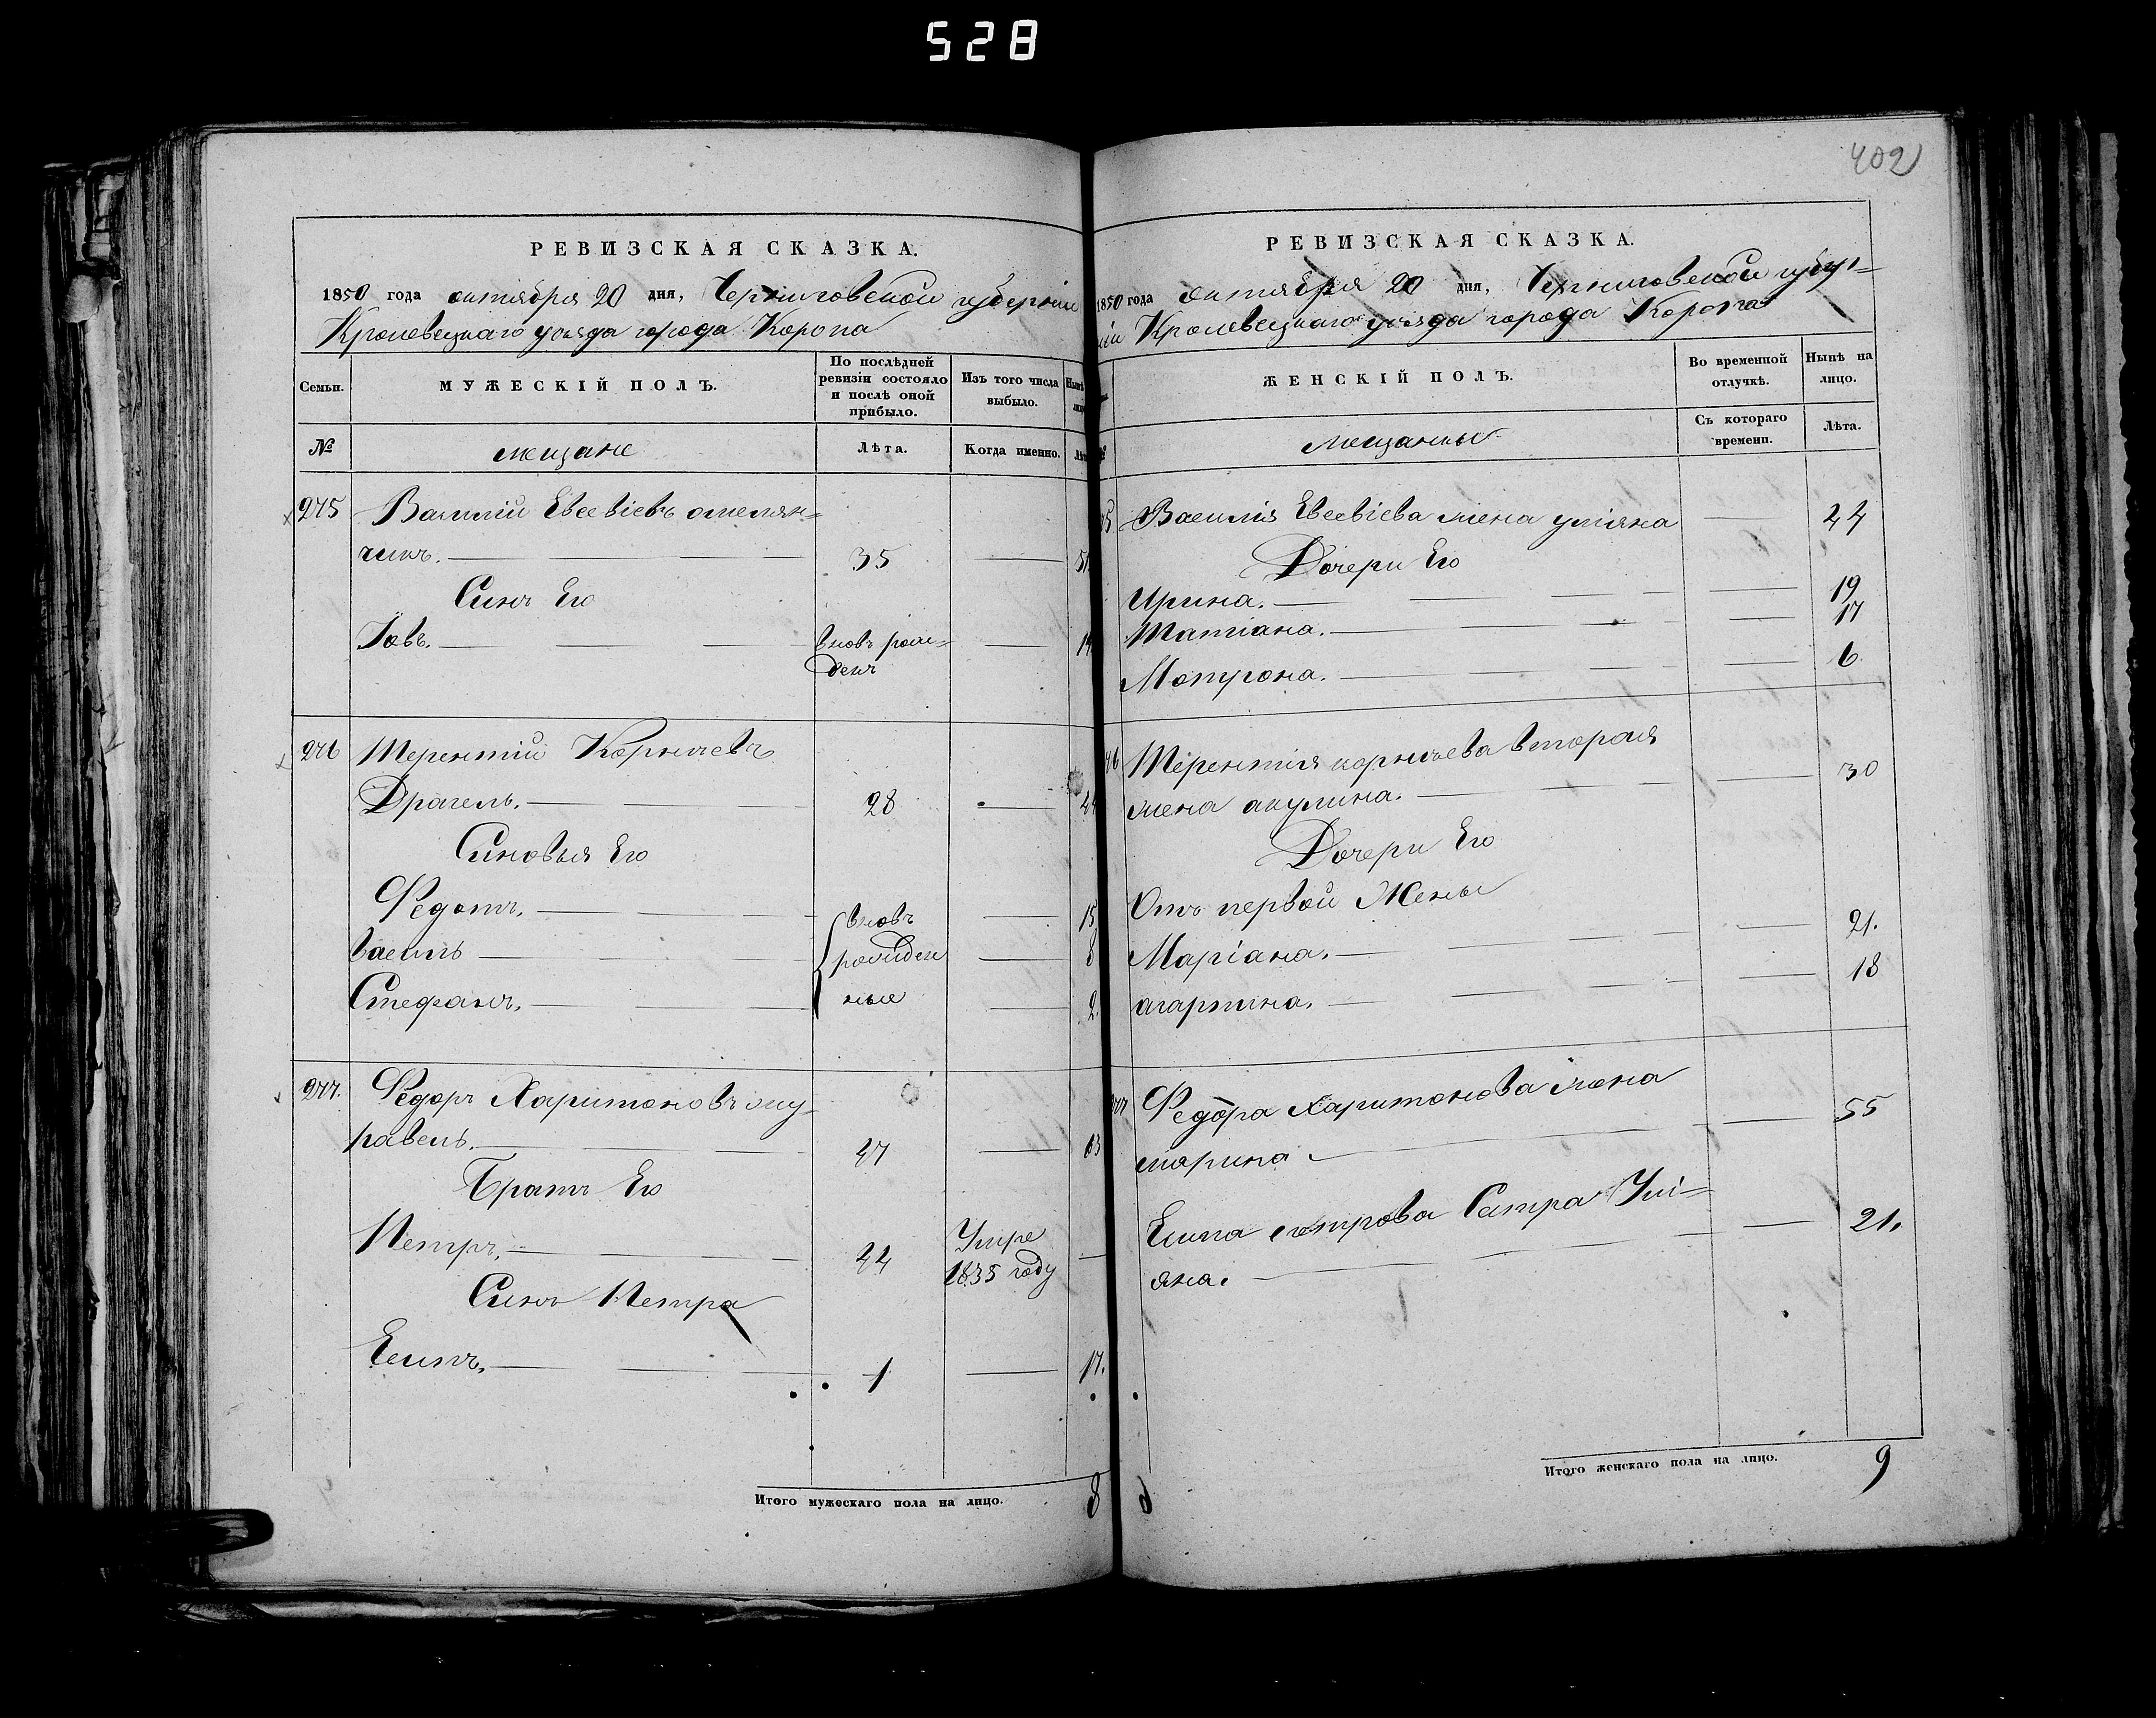 528
402
РЕВИЗСКАЯ СКАЗКА.
1850 года октября 20 дня, Черниговской губернии
Кролевецкаго уезда города Коропа
Семьи.
МУЖЕСКІЙ ПОЛЪ.
По послѣдней
ревизіи состояло
и послѣ оной
прибыло.
Изъ того числа
выбыло.
№
мещане
Лѣта.
Когда именно.
275 Василий Евсевіевъ омелян=
чикъ. 35 51
Синъ Его
Іовъ. вновъ рож=
денъ
276 Терентий Корнѣевъ
Драгель. 28 44
Синовья Его
Федотъ. вновъ 15
Василъ рожден 8
Стефанъ. ные 2
277. Федоръ Харитоновъ жу-
равель. 47 63
Братъ Его
Петръ. 44 Умре
1835 году
Синъ Петра
Есипъ. 1 17.
Итого мужескаго пола на лицо. 8
РЕВИЗСКАЯ СКАЗКА.
1850 года октября 20 дня, Черниговской губер=
ніи Кролевецкаго уезда города Коропа
ЖЕНСКІЙ ПОЛЪ.
Во временной
отлучкѣ.
Нынѣ на
лицо.
мещанки
Съ котораго
времени.
Лѣта.
Василія Евсевіева жена уліяна 44
Дочери Его
Ирина. 19
Татіана. 17
Мотрона. 6
Терентія корнѣева вторая
жена акулина. 30
Дочери Его
Отъ первой Жены
Маріана. 21.
агарпина. 18
Федора Харитонова жена
марина 55
Есипа петрова Сетра Улі=
яна. 21.
Итого женскаго пола на лицо. 9